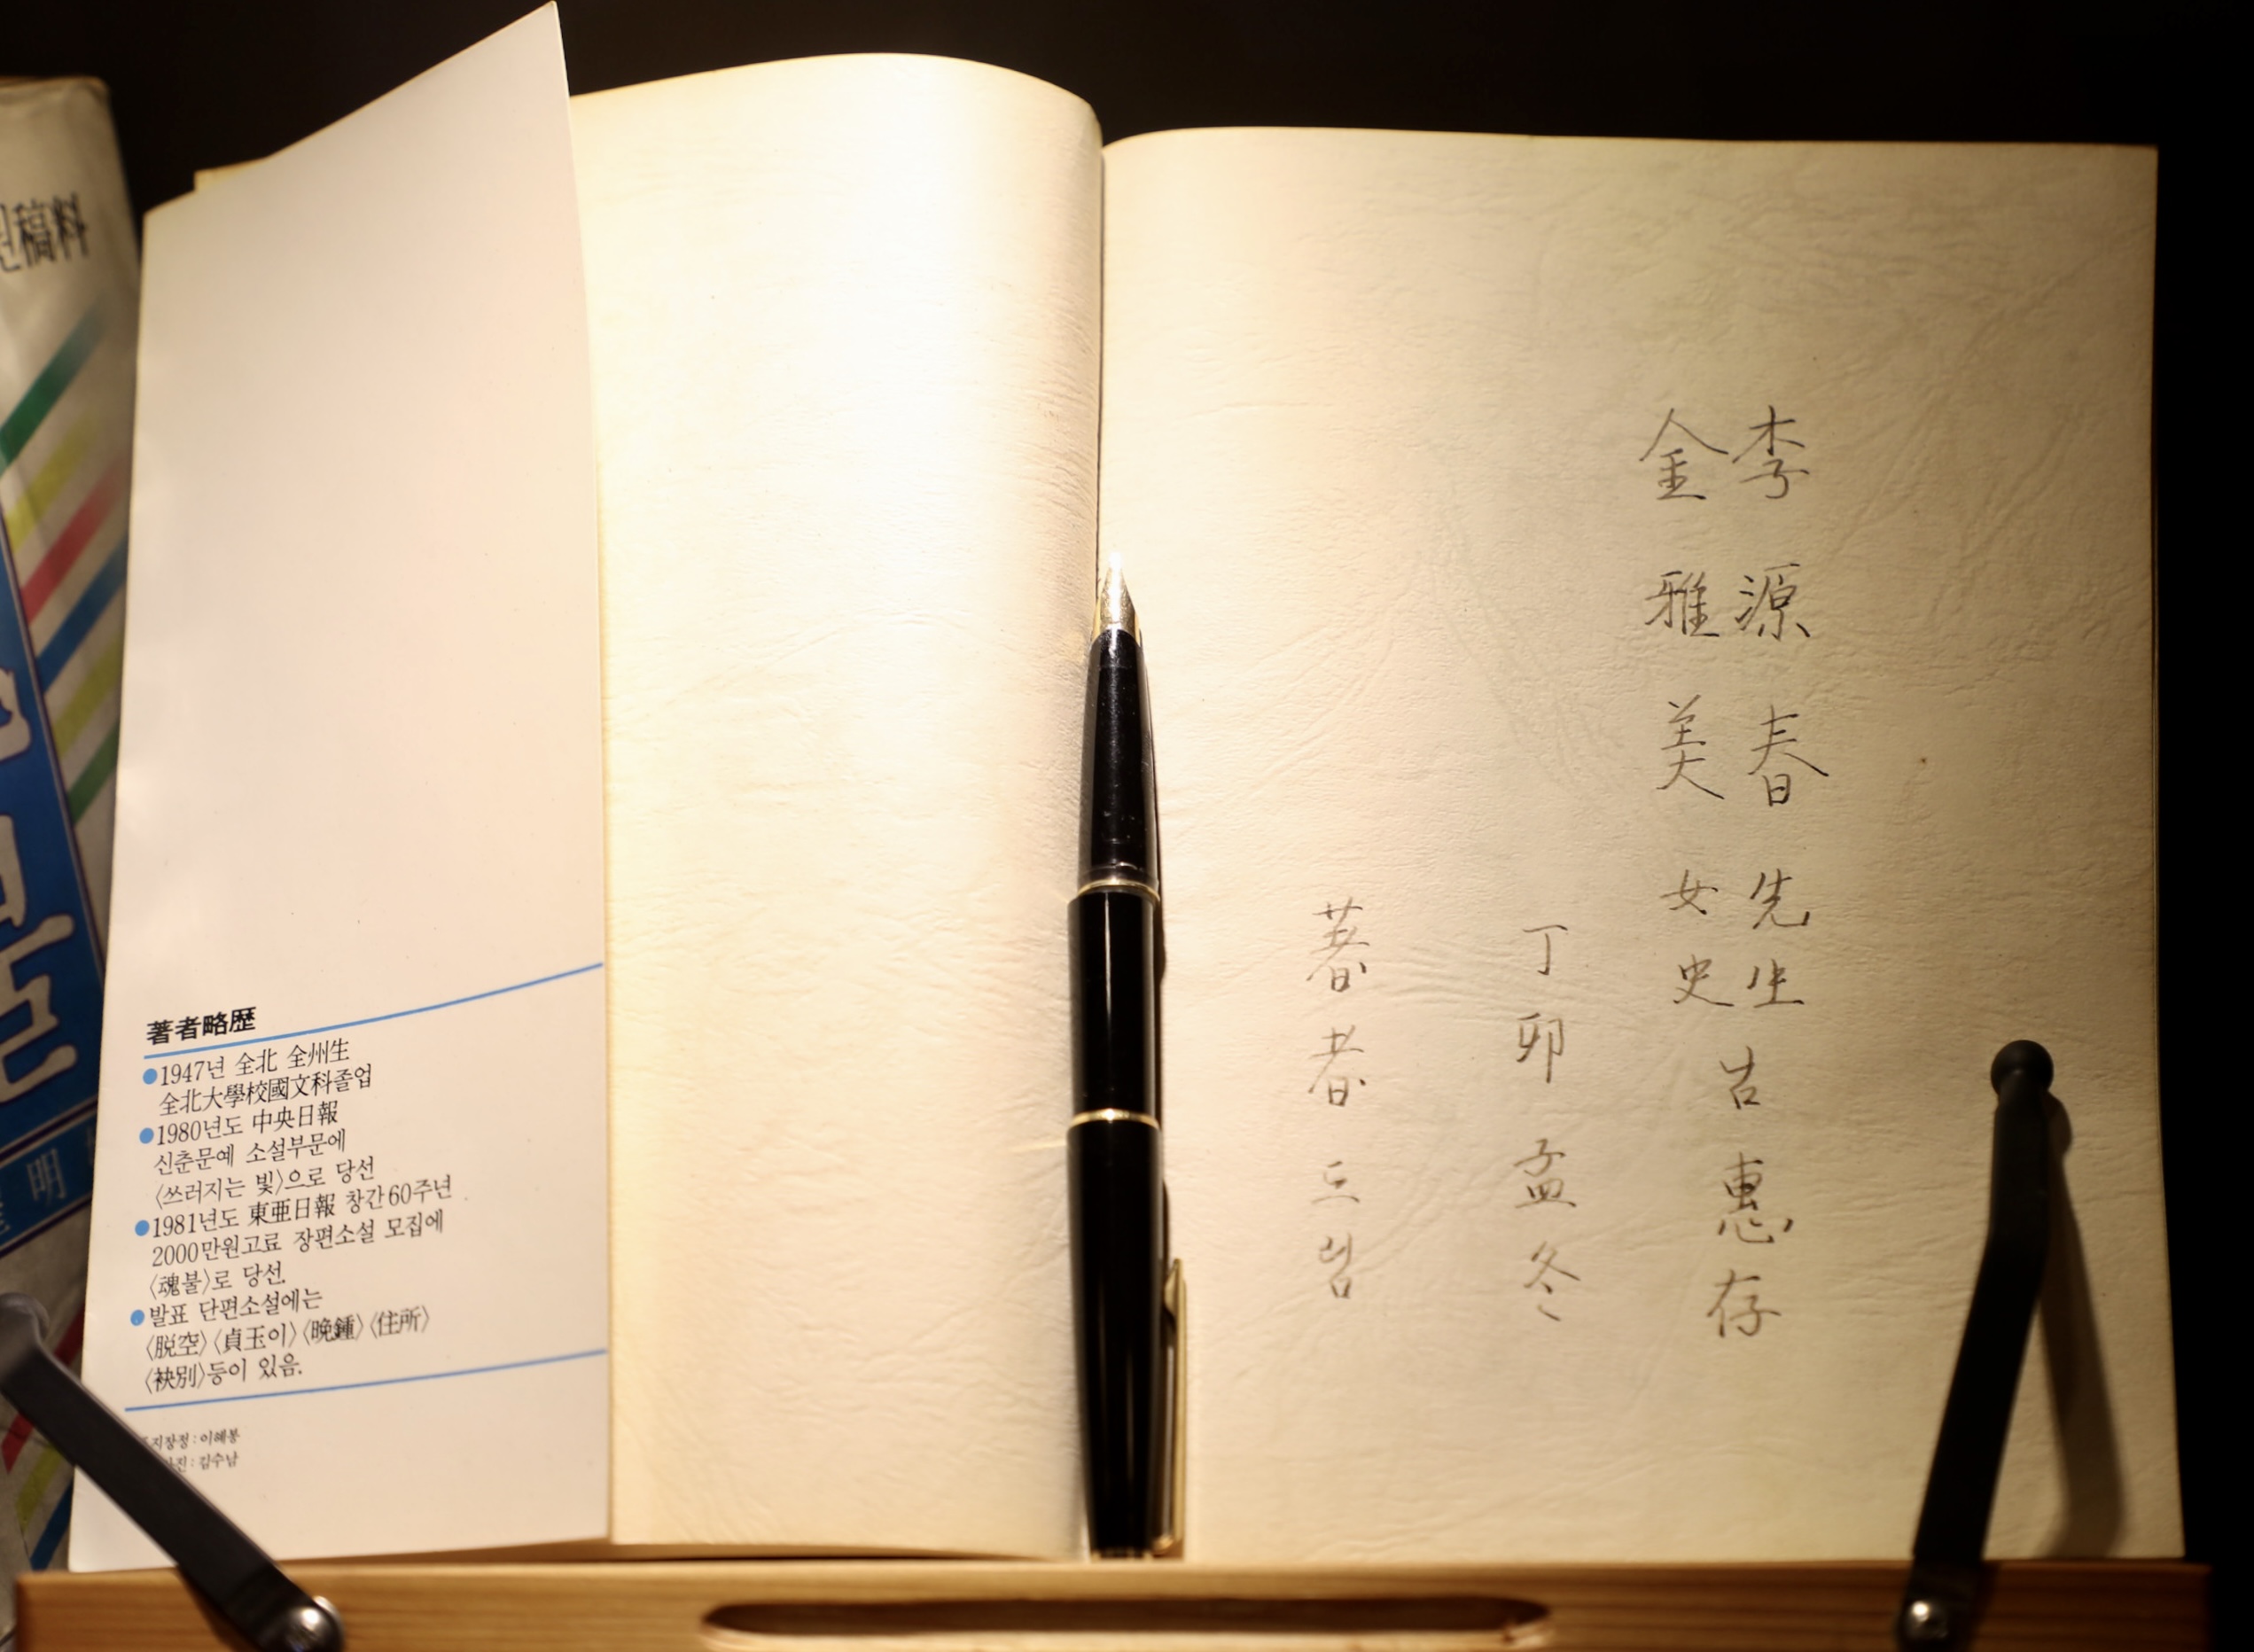 稿料
明
著者略歷
●1947년 全北 全州生
全北大學校國文科졸업
●1980년도 中央日報
신춘문예 소설부문에
〈쓰러지는 빛〉으로 당선
●1981년도 東亜日報 창간60주년
2000만원고료 장편소설 모집에
〈魂불〉로 당선.
●발표 단편소설에는
〈脱空〉〈貞玉이〉〈晚鍾〉〈住所〉
〈袂別〉등이 있음.
지장정 : 이혜봉
진 : 김수남
李源春先生
金雅美女史
惠存
丁卯孟冬
著者드림